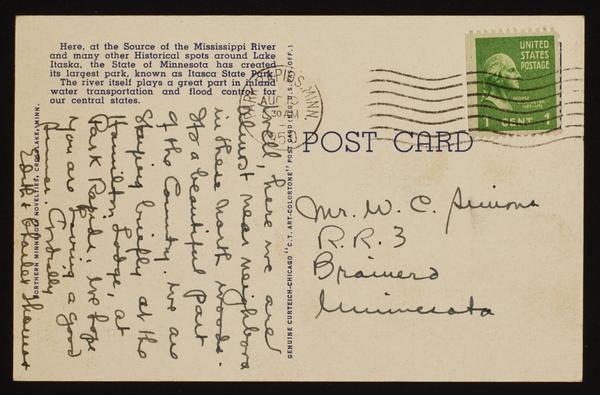 Here, at the Source of the Mississippi River
and many other Historical spots around Lake
Itaska, the State of Minnesota has created
its largest park, known as Itasca State Park.
The river itself plays a great part in inland
water transportation and flood control for
our central states.
PARK RAPIDS, MINN.
AUG
UNITED
STATES
POSTAGE
GEORGE
WASHINGTON
1 CENT 1
POST CARD
Well, here we are
in these north woods.
Almost near neighbors
It's a beautiful part
of the Country. We are
staying briefly at the
Hamilton Lodge, at
Park Rapids. We hope
you are having a good
summer. Cordially
Edith & Charles
NORTHERN MINNESOTA NOVELTIES, CROSSLAKE, MINN.
GENUINE CURTEICH-CHICAGO "C.T. ART-COLORTONE" POST CARD (REG. U.S. PAT. OFF.)
Mr. W. C. Simons
R. R. 3
Brainerd
Minnesota